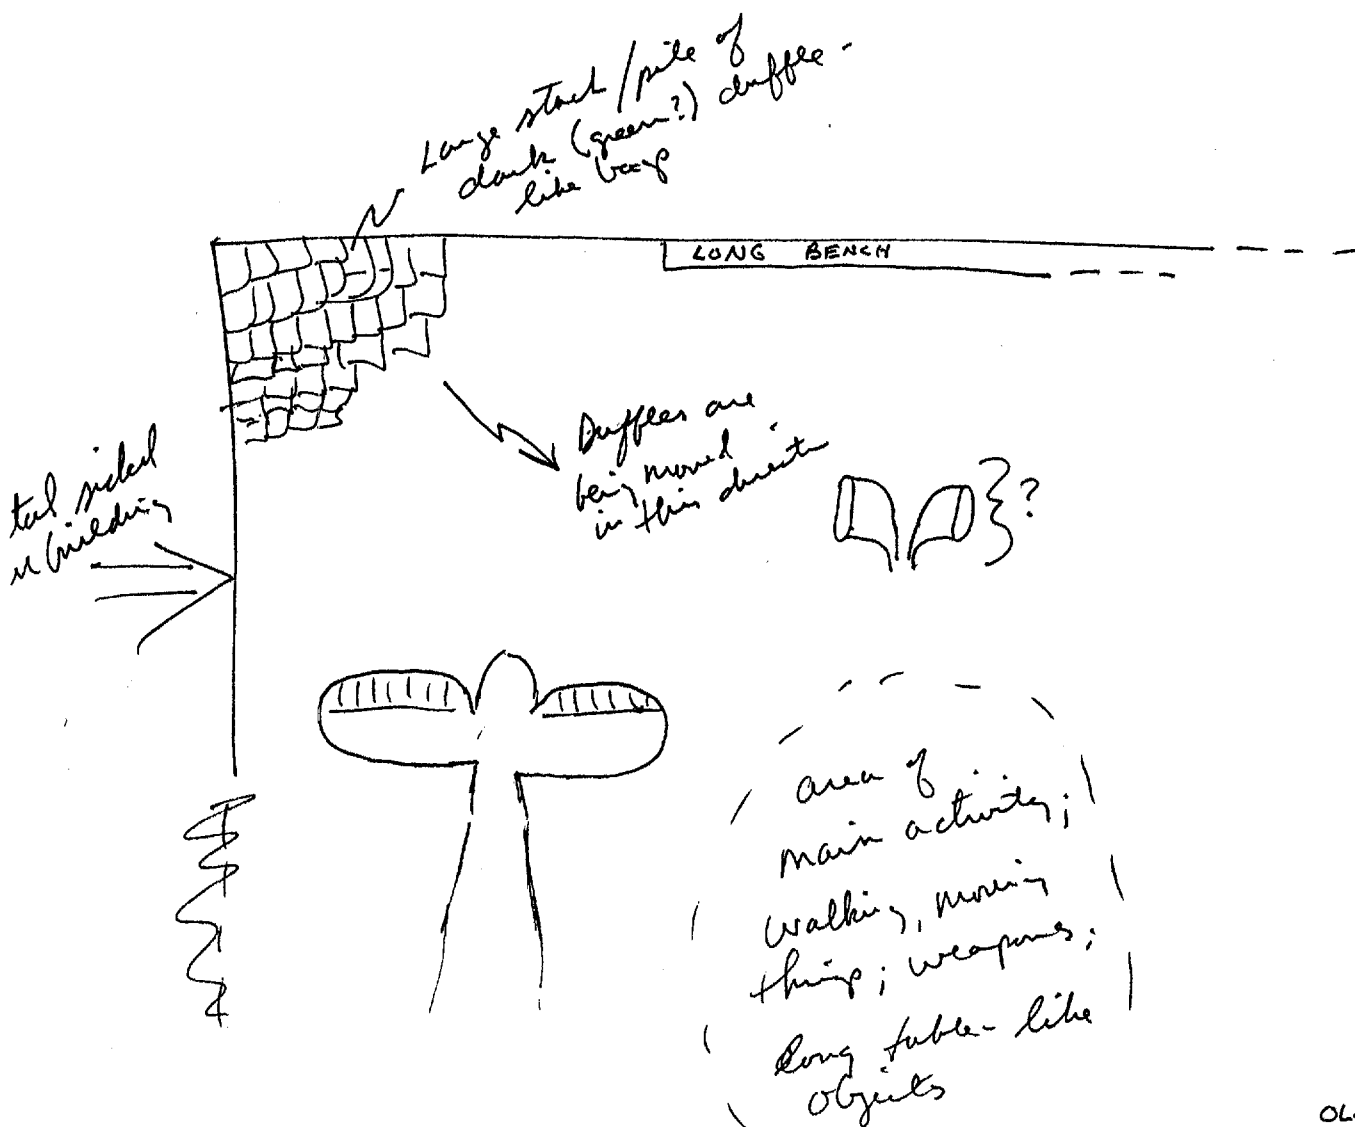 Large stack/pile of
dark (green?) duffle-
like bags
LONG BENCH
Duffles are
being moved
in this direction
tal sided
building
?
area of
main activity;
walking, moving
things; weapons;
long table-like
objects
OL